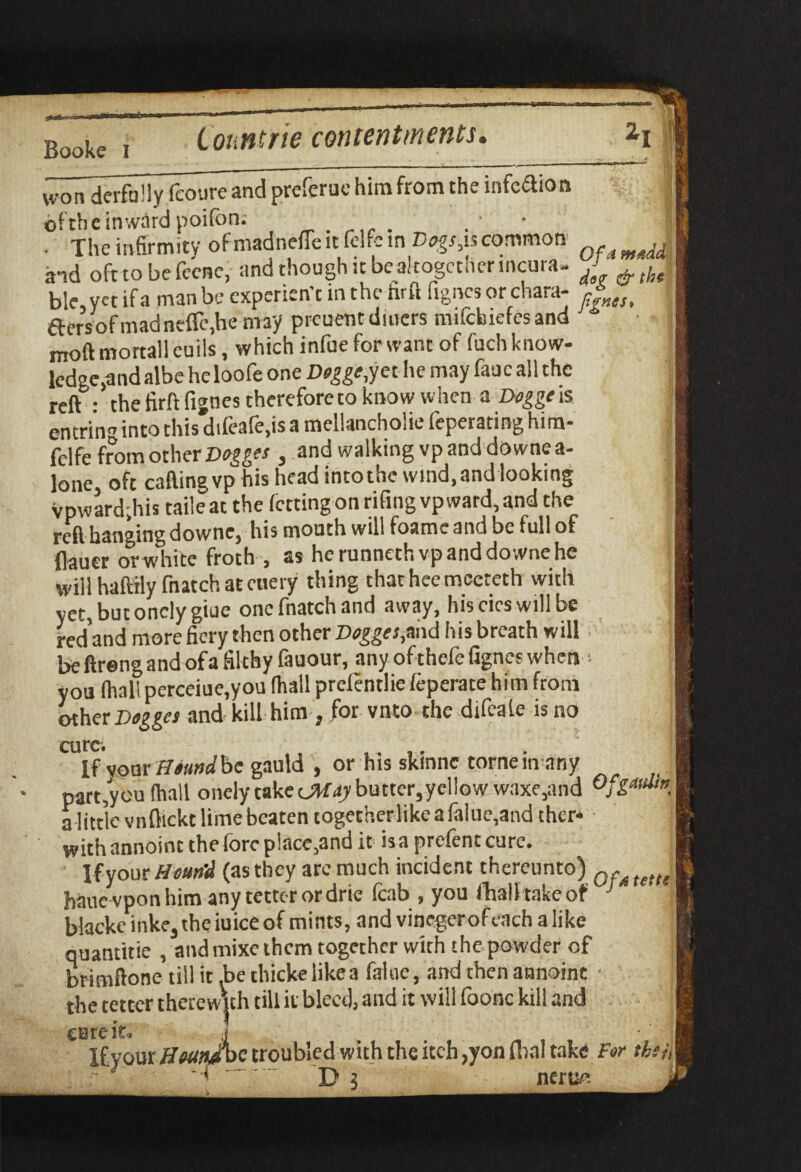 Booke 1 Countrie contentments. 21
won derfully ſcoure and preſerue him from the infection
of the inward poiſon.
The infirmity of madneſſe it ſelfe in Dogs, is common
and oft to be ſeene, and though it be altogether incura-
ble, yet if a man be experien't in the firſt ſignes or chara-
cters of madneſſe, he may preuent diuers miſchiefes and
moſt mortall euils, which inſue for want of ſuch know-
ledge, and albe he looſe one Dogge, yet he may ſaue all the
reſt : the firſt ſignes therefore to know when a Dogge is
entring into this diſeaſe, is a mellancholie ſeperating him-
ſelfe from other Dogges, and walking vp and downe a-
lone, oft caſting vp his head into the wind, and looking
vpward, his taile at the ſetting on riſing vpward, and the
reſt hanging downe, his mouth will foame and be full of
ſlauer or white froth, as he runneth vp and downe he
will haſtily ſnatch at euery thing that hee meeteth with
yet, but onely giue one ſnatch and away, his eies will be
red and more fiery then other Dogges, and his breath will
be ſtrong and of a filthy ſauour, any of theſe ſignes when
you ſhall perceiue, you ſhall preſentlie ſeperate him from
other Dogges and kill him, for vnto the diſeaſe is no
cure.
If your Hound be gauld, or his skinne torne in any
part, you ſhall onely take May butter, yellow waxe, and
a little vnſlickt lime beaten together like a ſalue, and ther-
with annoint the ſore place, and it is a preſent cure.
If your Hound (as they are much incident thereunto)
haue vpon him any tetter or drie ſcab, you ſhall take of
blacke inke, the iuice of mints, and vineger of each a like
quantitie, and mixe them together with the powder of
brimſtone till it be thicke like a ſalue, and then annoint
the tetter therewith till it bleed, and it will ſoone kill and
cure it.
If your Hound be troubled with the itch, yon ſhal take
D 3 nerue
Of a madd
dog & the
ſignes.
Of gaulin
Of a tette
For the i